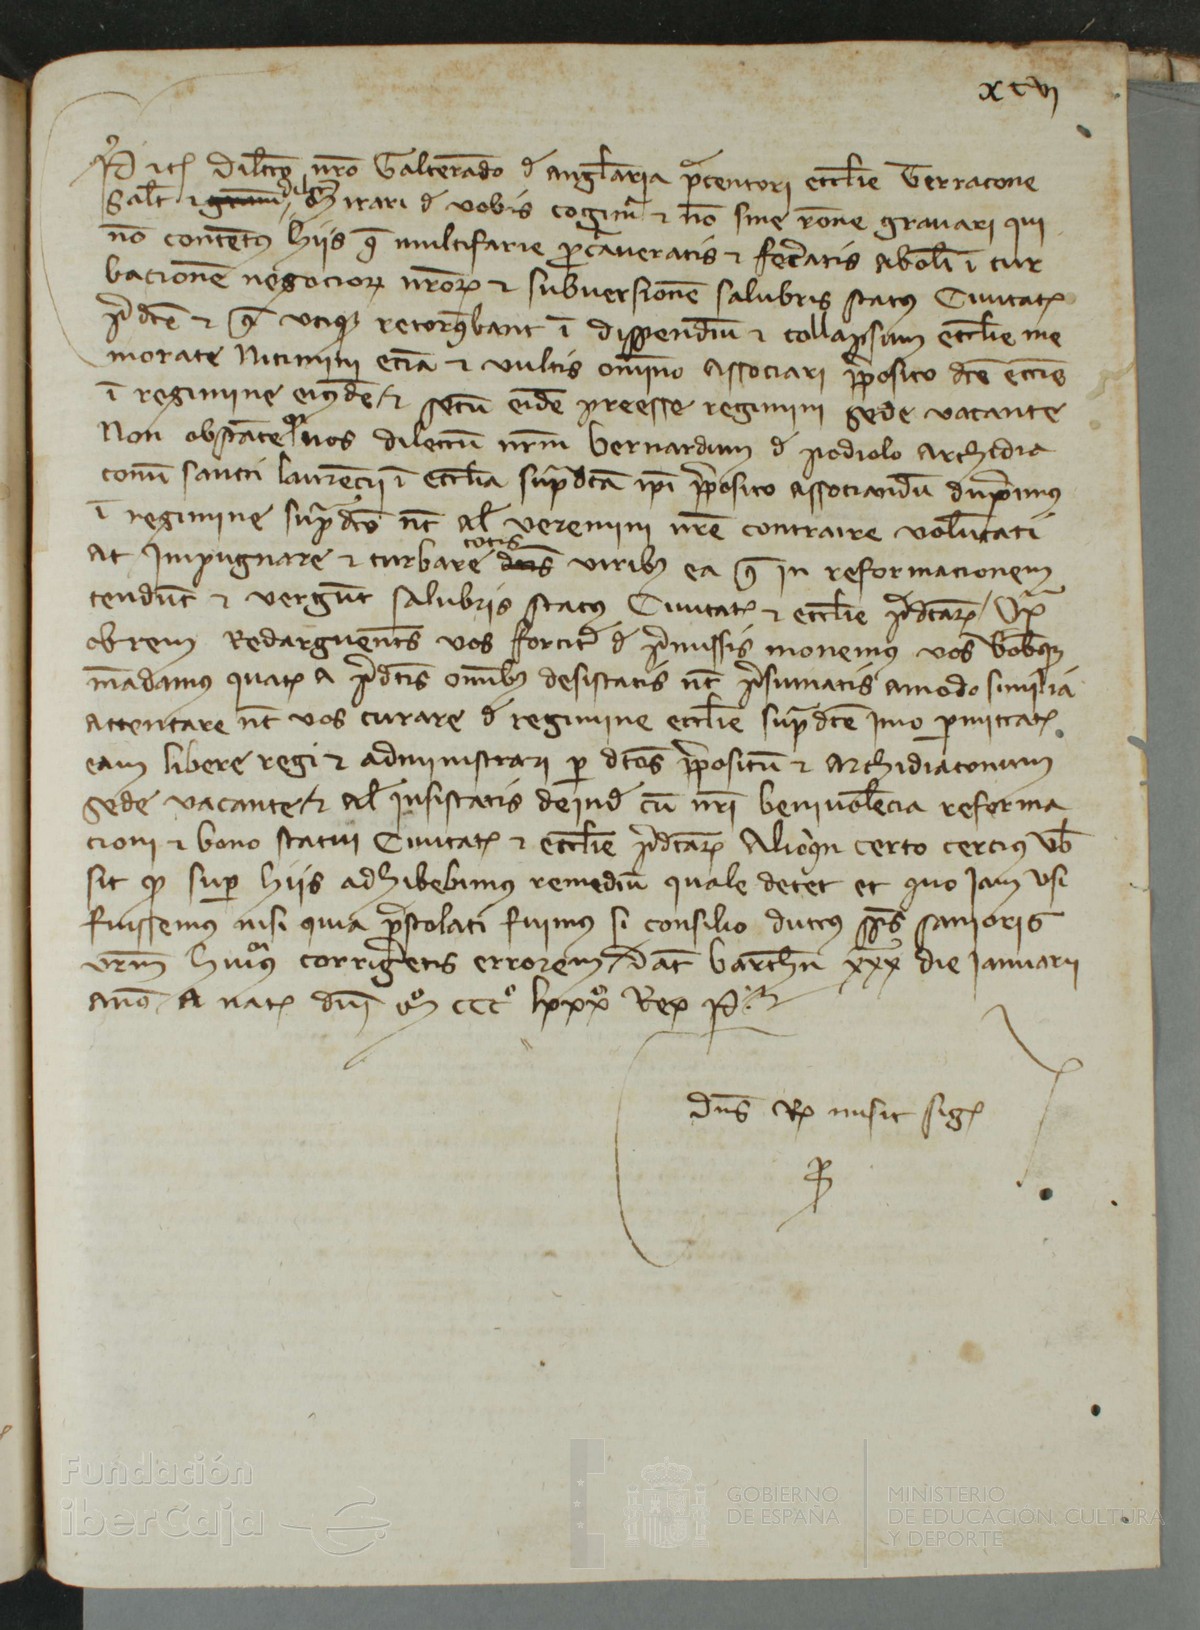 xcvi
P etc dilecto nro Galcerando de Anglaria precentori ecclie Terracone
Salt et dil Mirari de vobis cogimur et no sine rone gravari qui
no contentus hiis que multifarie procaveratis et feceratis aboli i tur
bacione negociorum nrorum et subversione salubris status Civitatis
pdce et que utique retorquebant i dispendiu et collapsum ecclie me
morate Nitimini ecia et vultis omnino associari pposito dce ecclie
i regimine eiusde et secu eide preesse regimini sede vacante
Non obstante quod nos dilectu nrm bernardum de podiolo Archidia
conu sancti laurecii i ecclia supradca ipi pposito associandu duximus
i regimine supradco nec al veremini nre contraire volutati
Ac impugnare et turbare totis viribus ea que in reformacionem
tendunt et vergunt salubris status Civitatis et ecclie predictarum Qua
obrem Redarguentes vos fortiter de premissis monemus vos vobisque
madamus quatenus a predictis omnibus desistatis nec presumatis amodo similia
attentare nec vos curare de regimine ecclie supradce Imo permittatis
eam libere regi et administrari per dcos prepositu et archidiaconum
sede vacante et al insistatis deinde cu nri benivolecia reforma
cioni et bono statui Civitatis et ecclie predictarum Alioquin certo cercius vob
sit quod super hiis adhibebimus remediu quale decet et quo Jam usi
fuissemus nisi quia prestolati fuimus si consilio ductus spus sanioris
vrm huiusmodi corrigetis errorem Dat barchn xxx die Januarii
anno A nat dni Mo ccco lxxxo Rex P
dns Rex misit sig
P
Fundación
iberCaja
GOBIERNO
DE ESPAÑA
MINISTERIO
DE EDUCACIÓN, CULTURA
Y DEPORTE